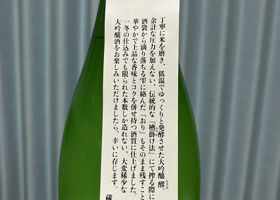 丁寧に米を磨き、低温でゆっくりと発酵させた大吟醸醪。
余計な圧力を加えない、伝統的な「槽掛け法」にて搾る際に
酒袋から滴り落ちる雫に絡んだ「おり」もそのまま残すこと
華やかで上品な香味とコクを併せ持つ酒質に仕上げました。
一冬の仕込みでも限られた本数しか造れない、大変稀少な
大吟醸酒をお楽しみいただけましたら、幸いに存じます。
蔵